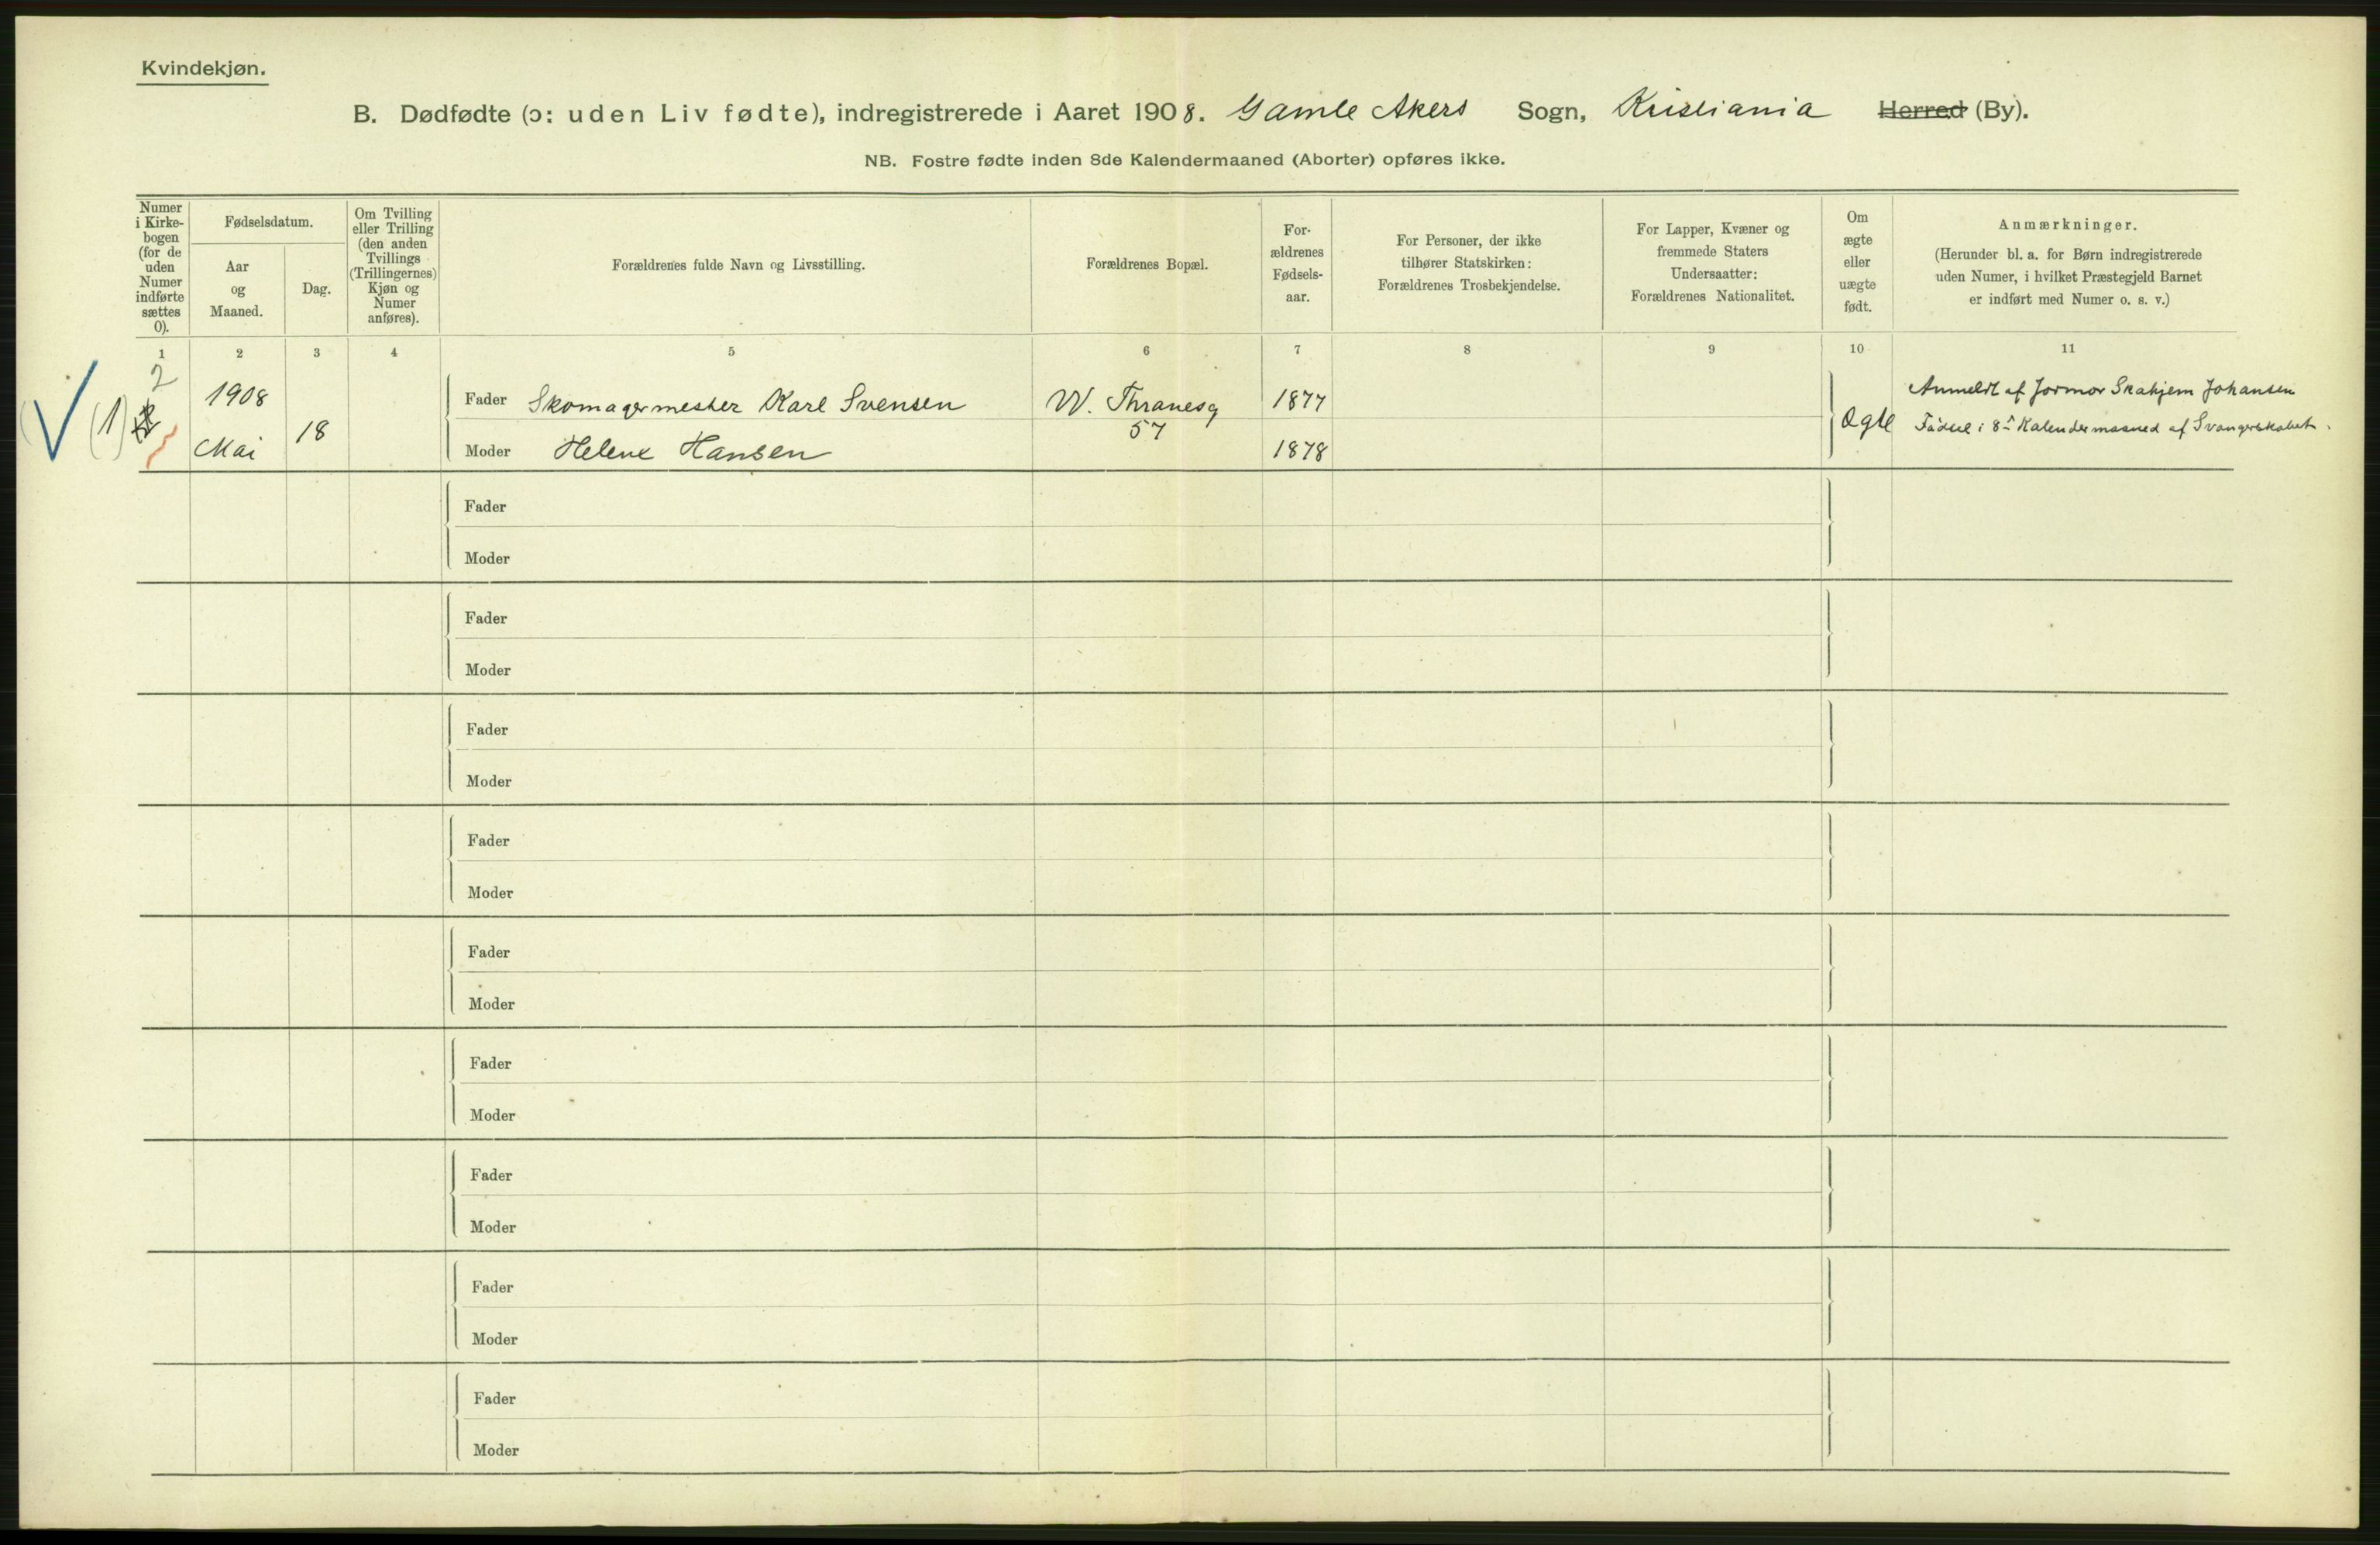 Kvindekjøn.
B. Dødfødte (ɔ: uden Liv fødte), indregistrerede i Aaret 1908. Gamle Akers Sogn, Kristiania Herred (By).
NB. Fostre fødte inden 8de Kalendermaaned (Aborter) opføres ikke.
Numer
i Kirke-
bogen
(for de
uden
Numer
indførte
sættes
0).
Fødselsdatum.
Aar
og
Maaned.
Dag.
Om Tvilling
eller Trilling
(den anden
Tvillings
(Trillingernes)
Kjøn og
Numer
anføres).
Forældrenes fulde Navn og Livsstilling.
Forældrenes Bopæl.
For-
ældrenes
Fødsels-
aar.
For Personer, der ikke
tilhører Statskirken:
Forældrenes Trosbekjendelse.
For Lapper, Kvæner og
fremmede Staters
Undersaatter:
Forældrenes Nationalitet.
Om
ægte
eller
uægte
født.
Anmærkninger.
(Herunder bl. a. for Børn indregistrerede
uden Numer, i hvilket Præstegjeld Barnet
er indført med Numer o. s. v.)
1 2 3 4 5 6 7 8 9 10 11
2
(1)
1908
Mai
18
Fader Skomagermester Karl Svensen
Moder Helene Hansen
W. Thranesg
57
1877
1878
Ægte
Anmeldt af Jormor Skahjem Johansen
Fødsel i 8de Kalendermaaned af Svangerskabet.
Fader
Moder
Fader
Moder
Fader
Moder
Fader
Moder
Fader
Moder
Fader
Moder
Fader
Moder
Fader
Moder
Fader
Moder